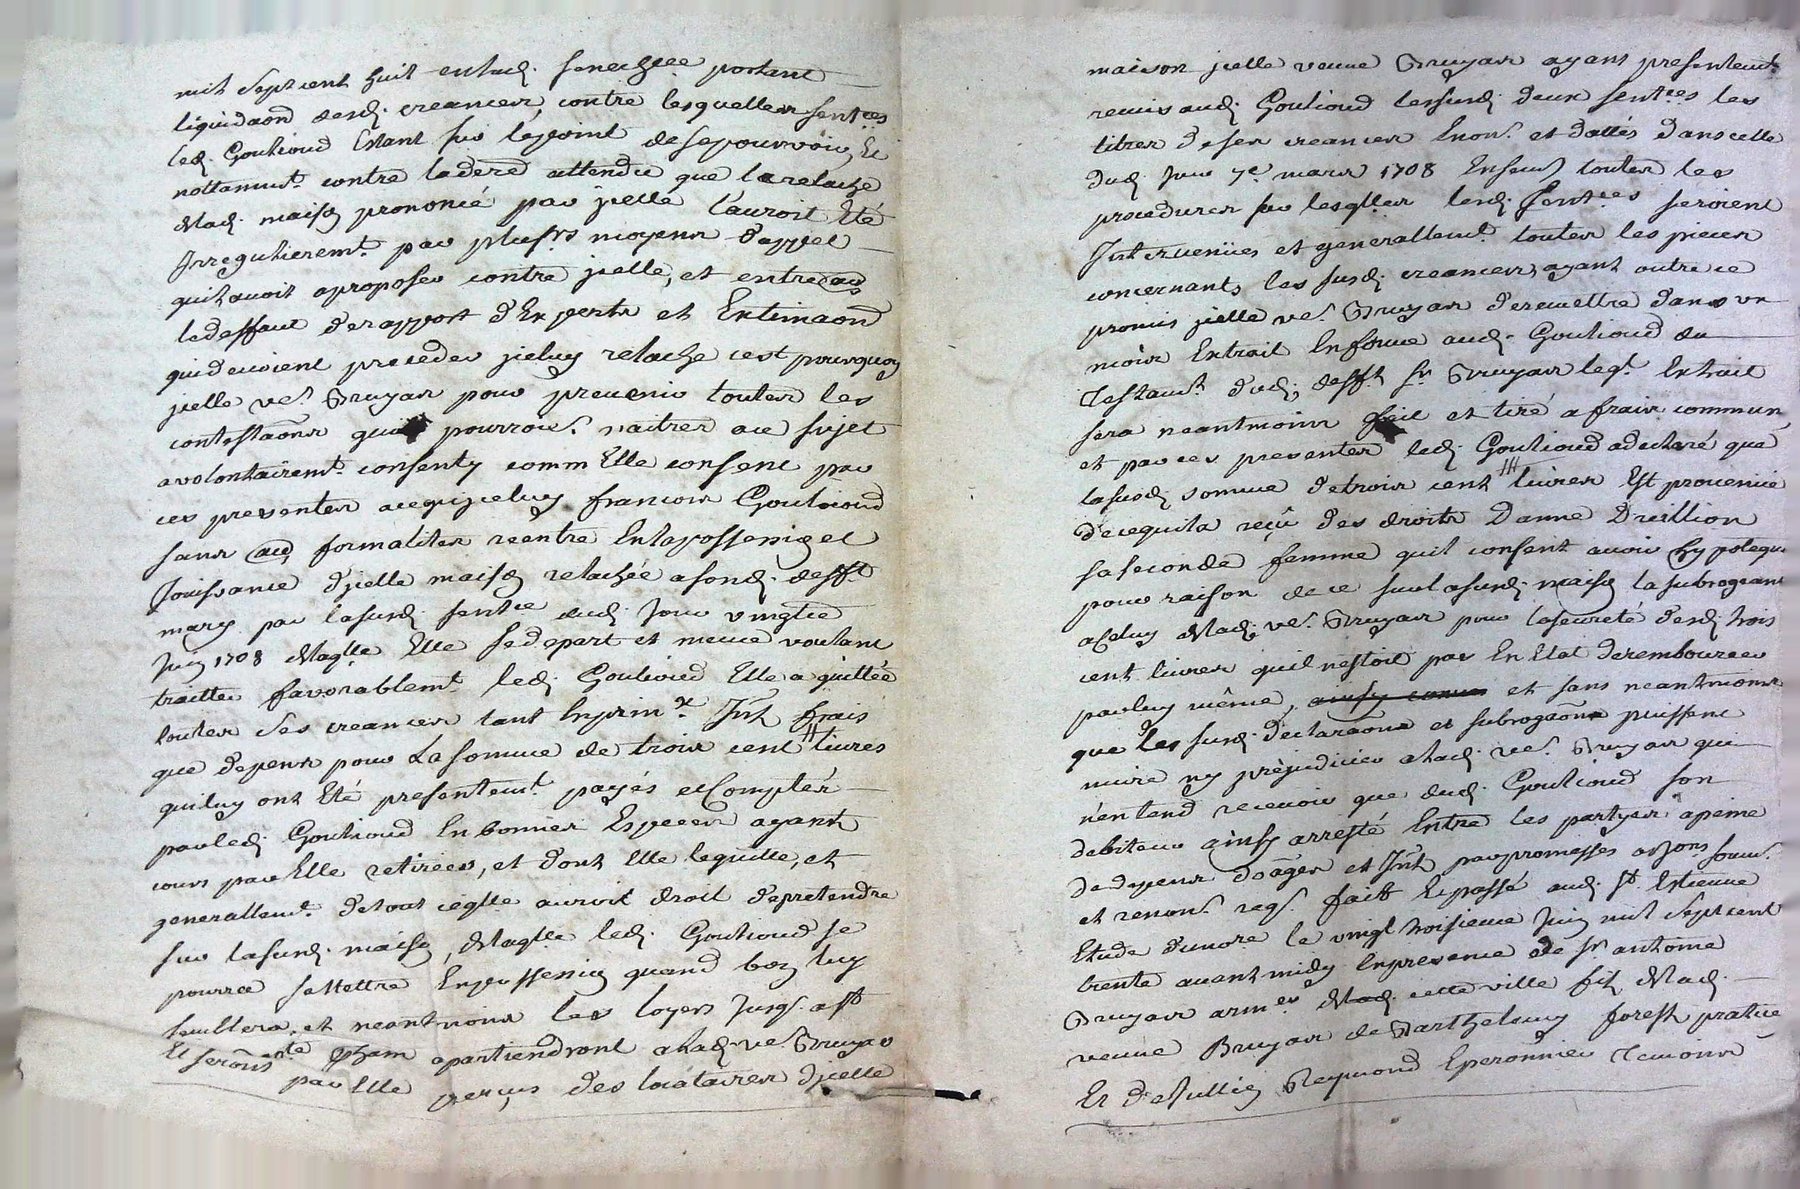 mil sept cent huit en lad. senechée portant
liquidaon desd. creances, contre lesquelles sentces
led. Goutioud estant sur le point de se pourvoir, Et
nottammt. contre la dere attendu que la relache
de lad. maison prononcé par jcelle l'auroit Eté
Irregulieremt. par plusrs moyens d'appel
quil avoit a proposer contre jcelle, et entre au
le deffaut de rapport d'Experts et Extimaon
qui devoient preceder jceluy relache c'est pourquoy
jcelle ve. Bruyas pour prevenir toutes les
contestaons qui pourroit. naitres au sujet
a volontairemt. consenty comm Elle consent par
ces presentes a ce qu jceluy francois Goutioud
sans au formalites rentre En la possession et
Jouissance d'jcelle maison relachée a fond. defft
mary par la susd. sentce dud. jour vingt
Juin 1708 de laqlle Elle se depart et meme voulant
traitter favorablemt. led. Goutioud Elle a quittée
toutes ses creances tant En prin.x Jnt. frais
que depens pour La somme de trois cent livres
qui luy ont Eté presentemt. payés et Comptés
par led. Goutioud En bonnes Especes ayant
cours par Elle retirées, et dont Elle le quitte, et
generallemt. de tout ce qlle auroit droit de pretendre
sur la susd. maison, de laqlle led. Goutioud se
pourra se Mettre En possession quand bon luy
semblera, et neantmoins les loyers Jusq. a st
apartiendront a lad. ve. Bruyas
Et seront
par Elle perçus des locataires d'jcelle
maison jcelle veuve Bruyas ayant presentemt.
remis aud. Goutioud les susd. deux sentces les
titres de ses creances Enon. et dattés dans celle
dud. jour 7e. mars 1708 Ensemb. toutes les
procedures sur lesqlles lesd. sentces seroient
Intervenües et generallemt. toutes les pieces
concernants les susd. creances, ayant outre ce
promis jcelle ve. Bruyas de remettre dans un
mois Extrait En forme aud. Goutioud du
Testamt. dud. defft. sr. Bruyas leqt. Extrait
sera neantmoins fait et tiré a frais communs
et par ces presentes led. Goutioud a declaré que
la susd. somme de trois cent livres Est provenue
de ce qu'il a reçû des droits Danne Drillion
sa seconde femme qu'il consent avoir hypoteque
pour raison de ce sur la susd. maison la subrogeant
a Celuy de lad. ve. Bruyas pour la seureté desd. trois
cent livres qu'il n'estoit pas En Etat de rembourcer
par luy même, et sans neantmoins
que les susd. declaraons et subrogaons puissent
nuire ny prejudicier a lad. ve. Bruyas qui
n'entend recevoir que dud. Goutioud son
debiteur ainsy arresté Entre les partyes a peine
de depens d'oages et Jnt. par promesses
et renon. req. fait et passé aud. St. Estienne
Etude dunore le vingt troisieme Juin mil sept cent
trente avant midy En presence de sr. antoine
Bruyas armer de cette ville fils de lad.
veuve Bruyas de Barthelemy forest praticn
Et de Jullien Reymond Eperonnier Temoins